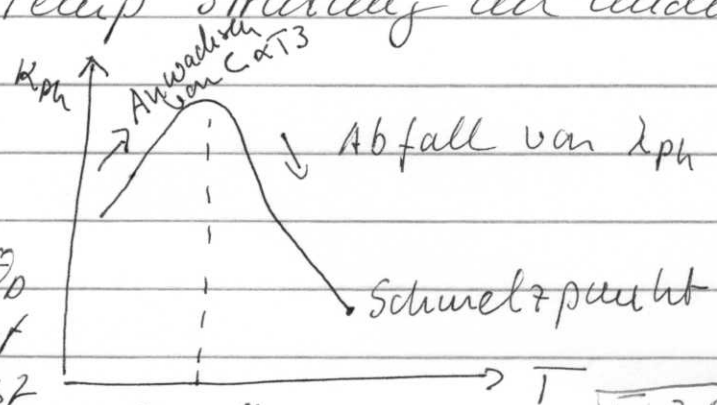 Temp
K_ph
Anwachsen
von C ∝ T3
Abfall von λ_ph
Schmelzpunkt
T